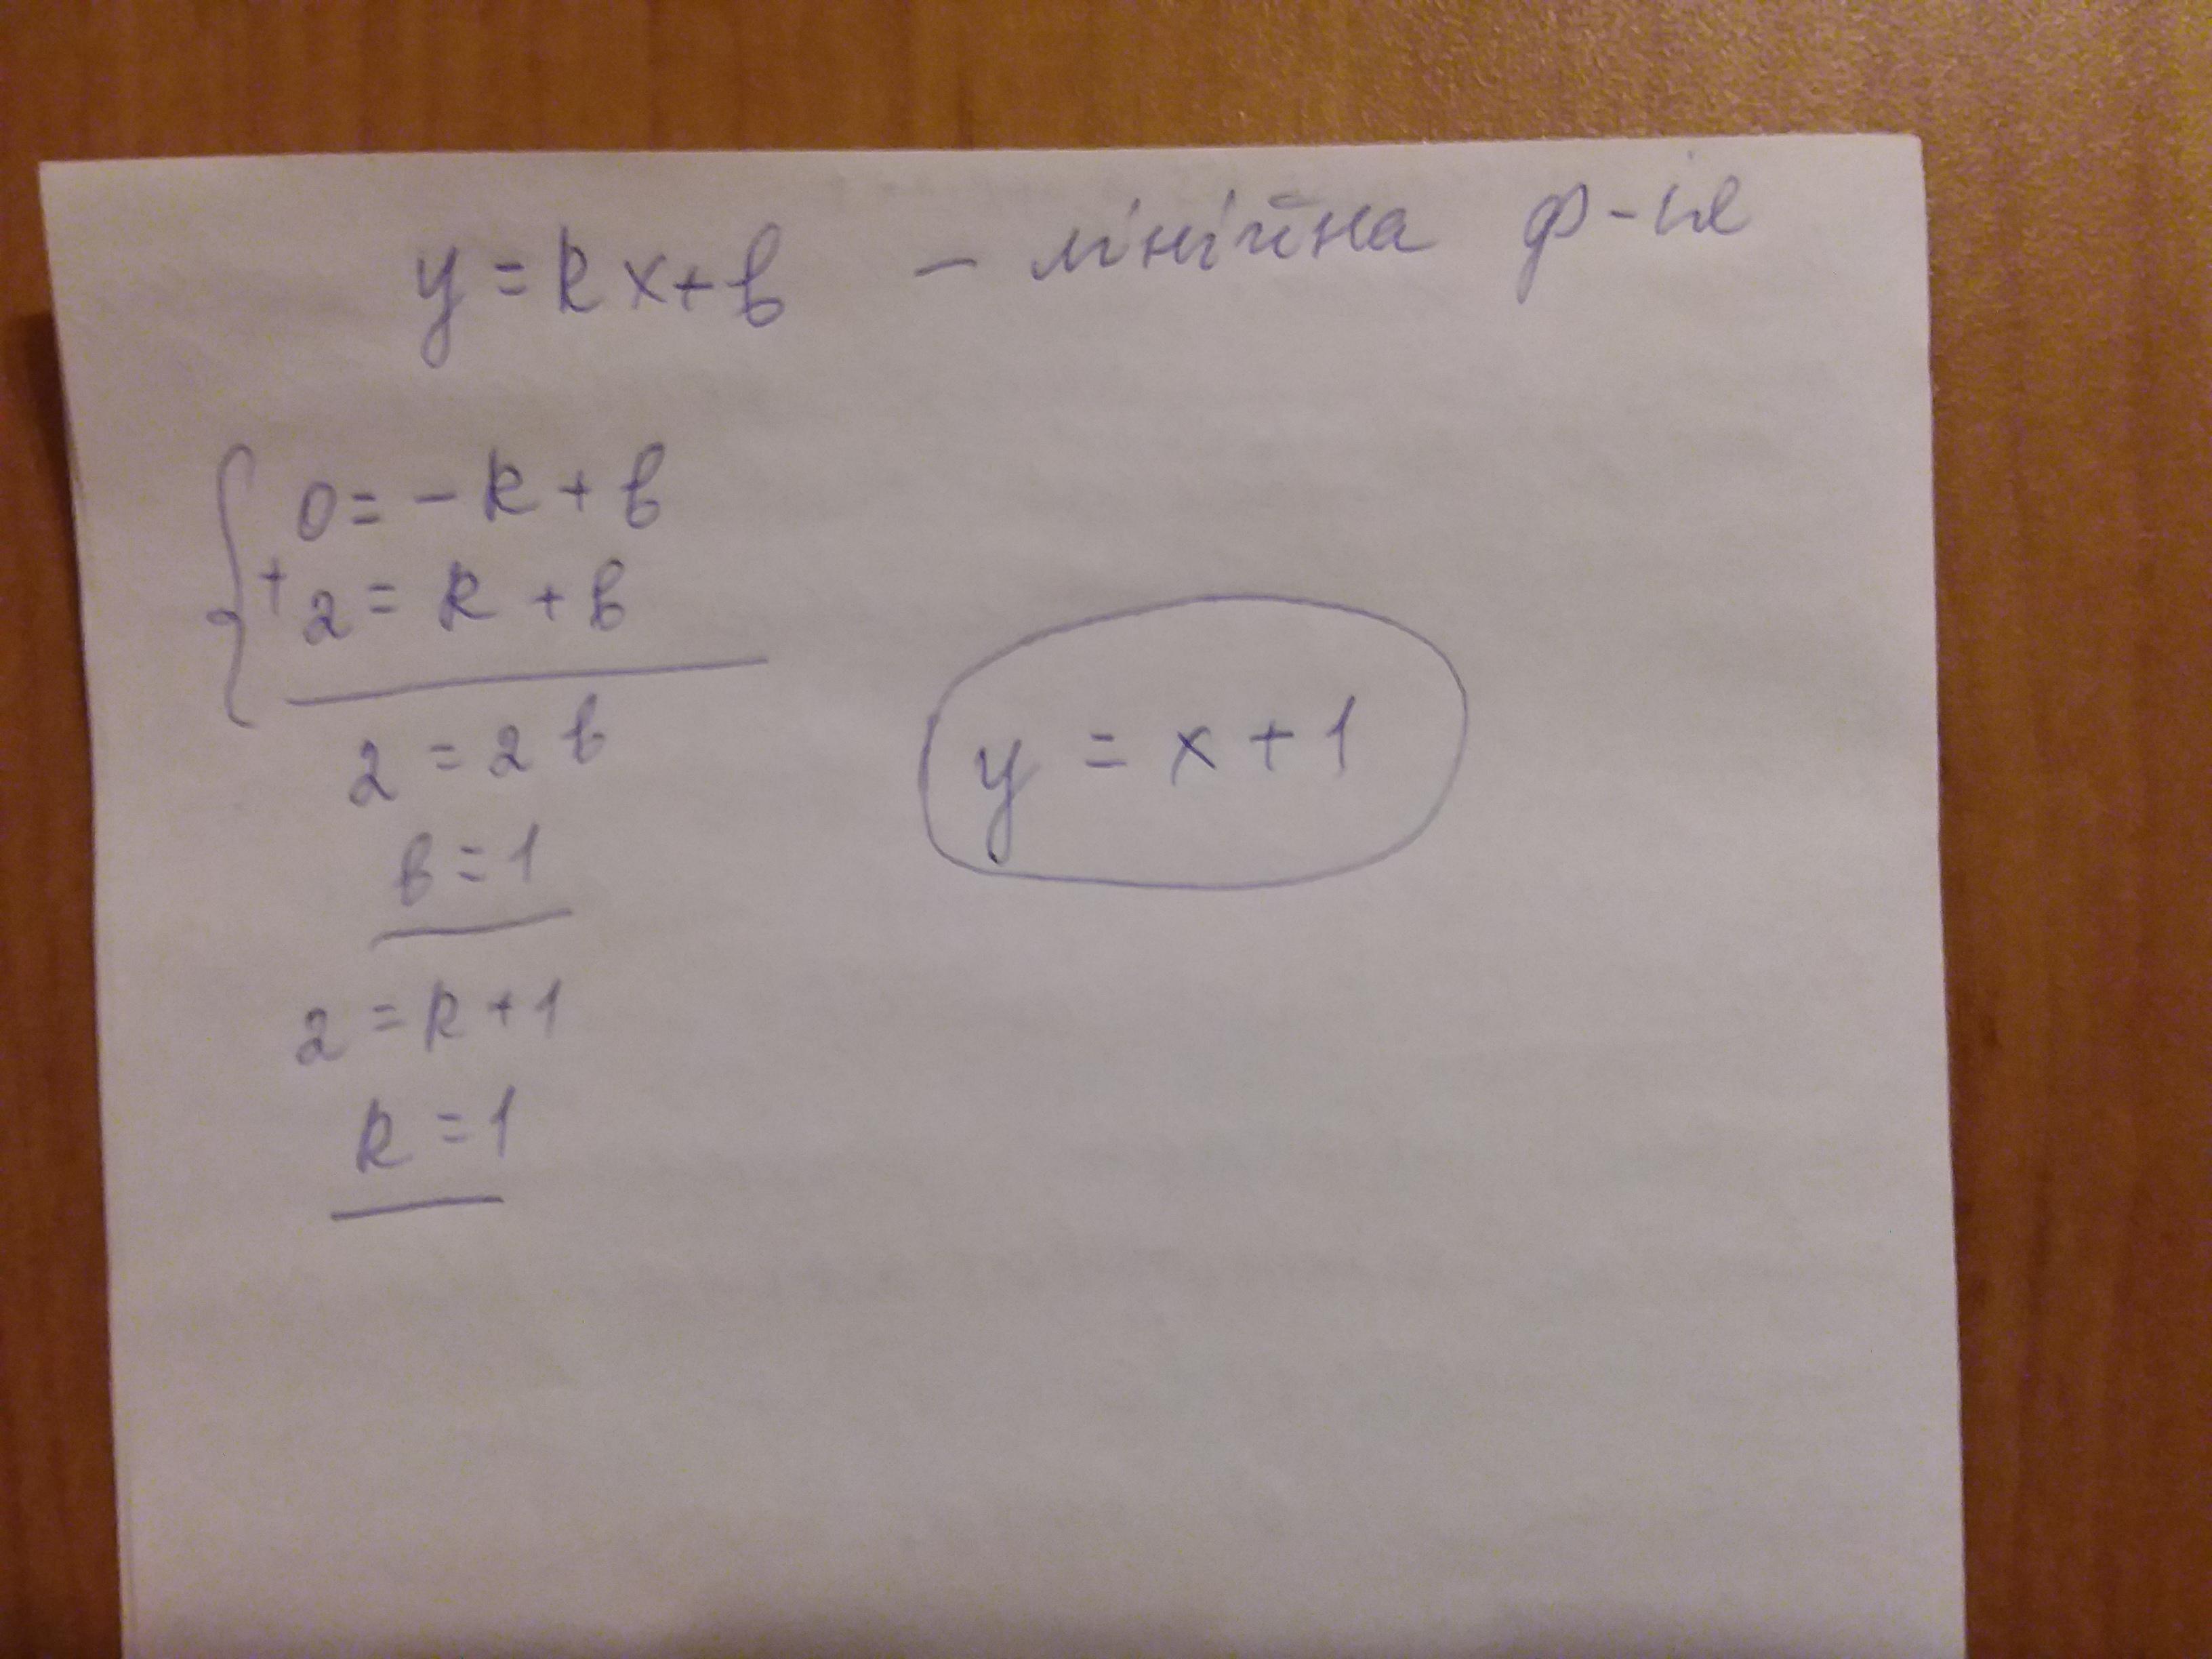 y = kx + b - лінійна ф-ія
0 = - k + b
+ 2 = k + b
2 = 2 b
b = 1
2 = k + 1
k = 1
y = x + 1